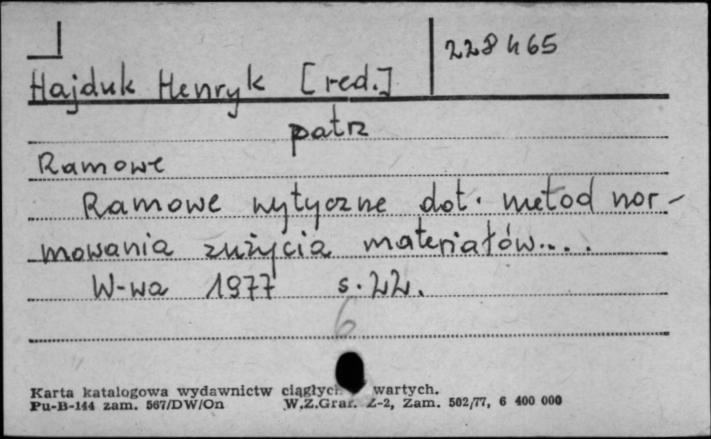 228465
Hajduk Henryk [red.]
patrz
Ramowe
Ramowe wytyczne dot. metod nor-
mowania zużycia materiałów....
W-wa 1977 s. 22.
6
Karta katalogowa wydawnictw wartych.
Pu-B-144 zam. 567/DW/On W.Z.Graf. Z-2, Zam. 502/77, 6 400 000